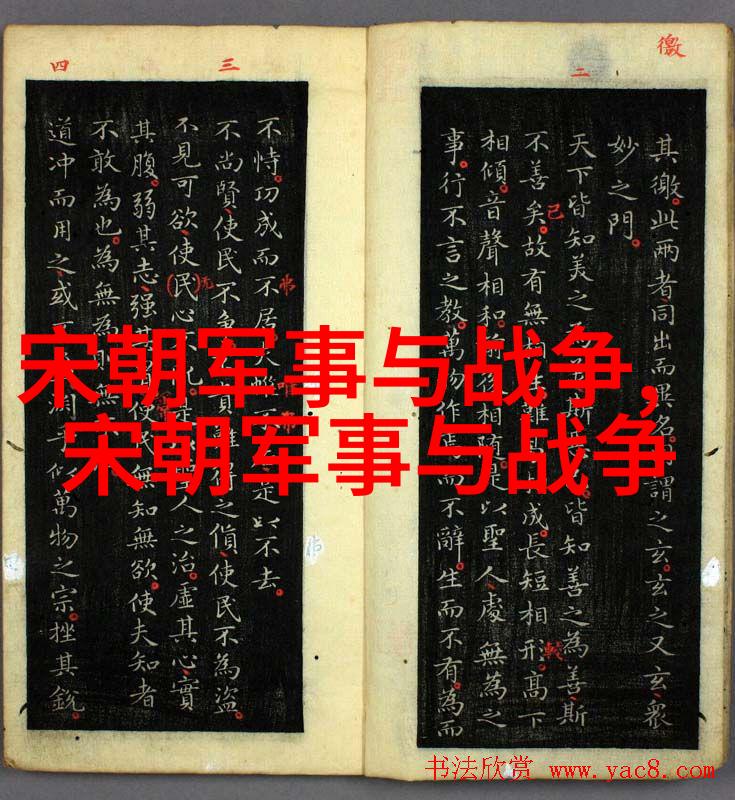 宋朝军事与战争,
宋朝军事与战争
徼
二
其徼。此兩者同出而異名。謂之玄。玄之又玄衆
妙之門。
天下皆知美之斯皆知善之為善斯
不善矣。故有無相成。長短相形。髙下
相傾。音聲相和。前後相随。是以聖人處無為之
事。行不言之教。萬物作焉而不辭。生而不有。為而
己
三
四
不恃。功成而不居是以不去。
不尚賢使民不貴難得之貨使民不為盜。
不見可欲使民心不人之治。虛其心實
其腹。弱其志强其使民無知無欲。使夫知者
不敢為也。為無為則無
道冲而用之或淵乎似萬物之宗。挫其銳。
无
书法欣赏 www.yac8.com